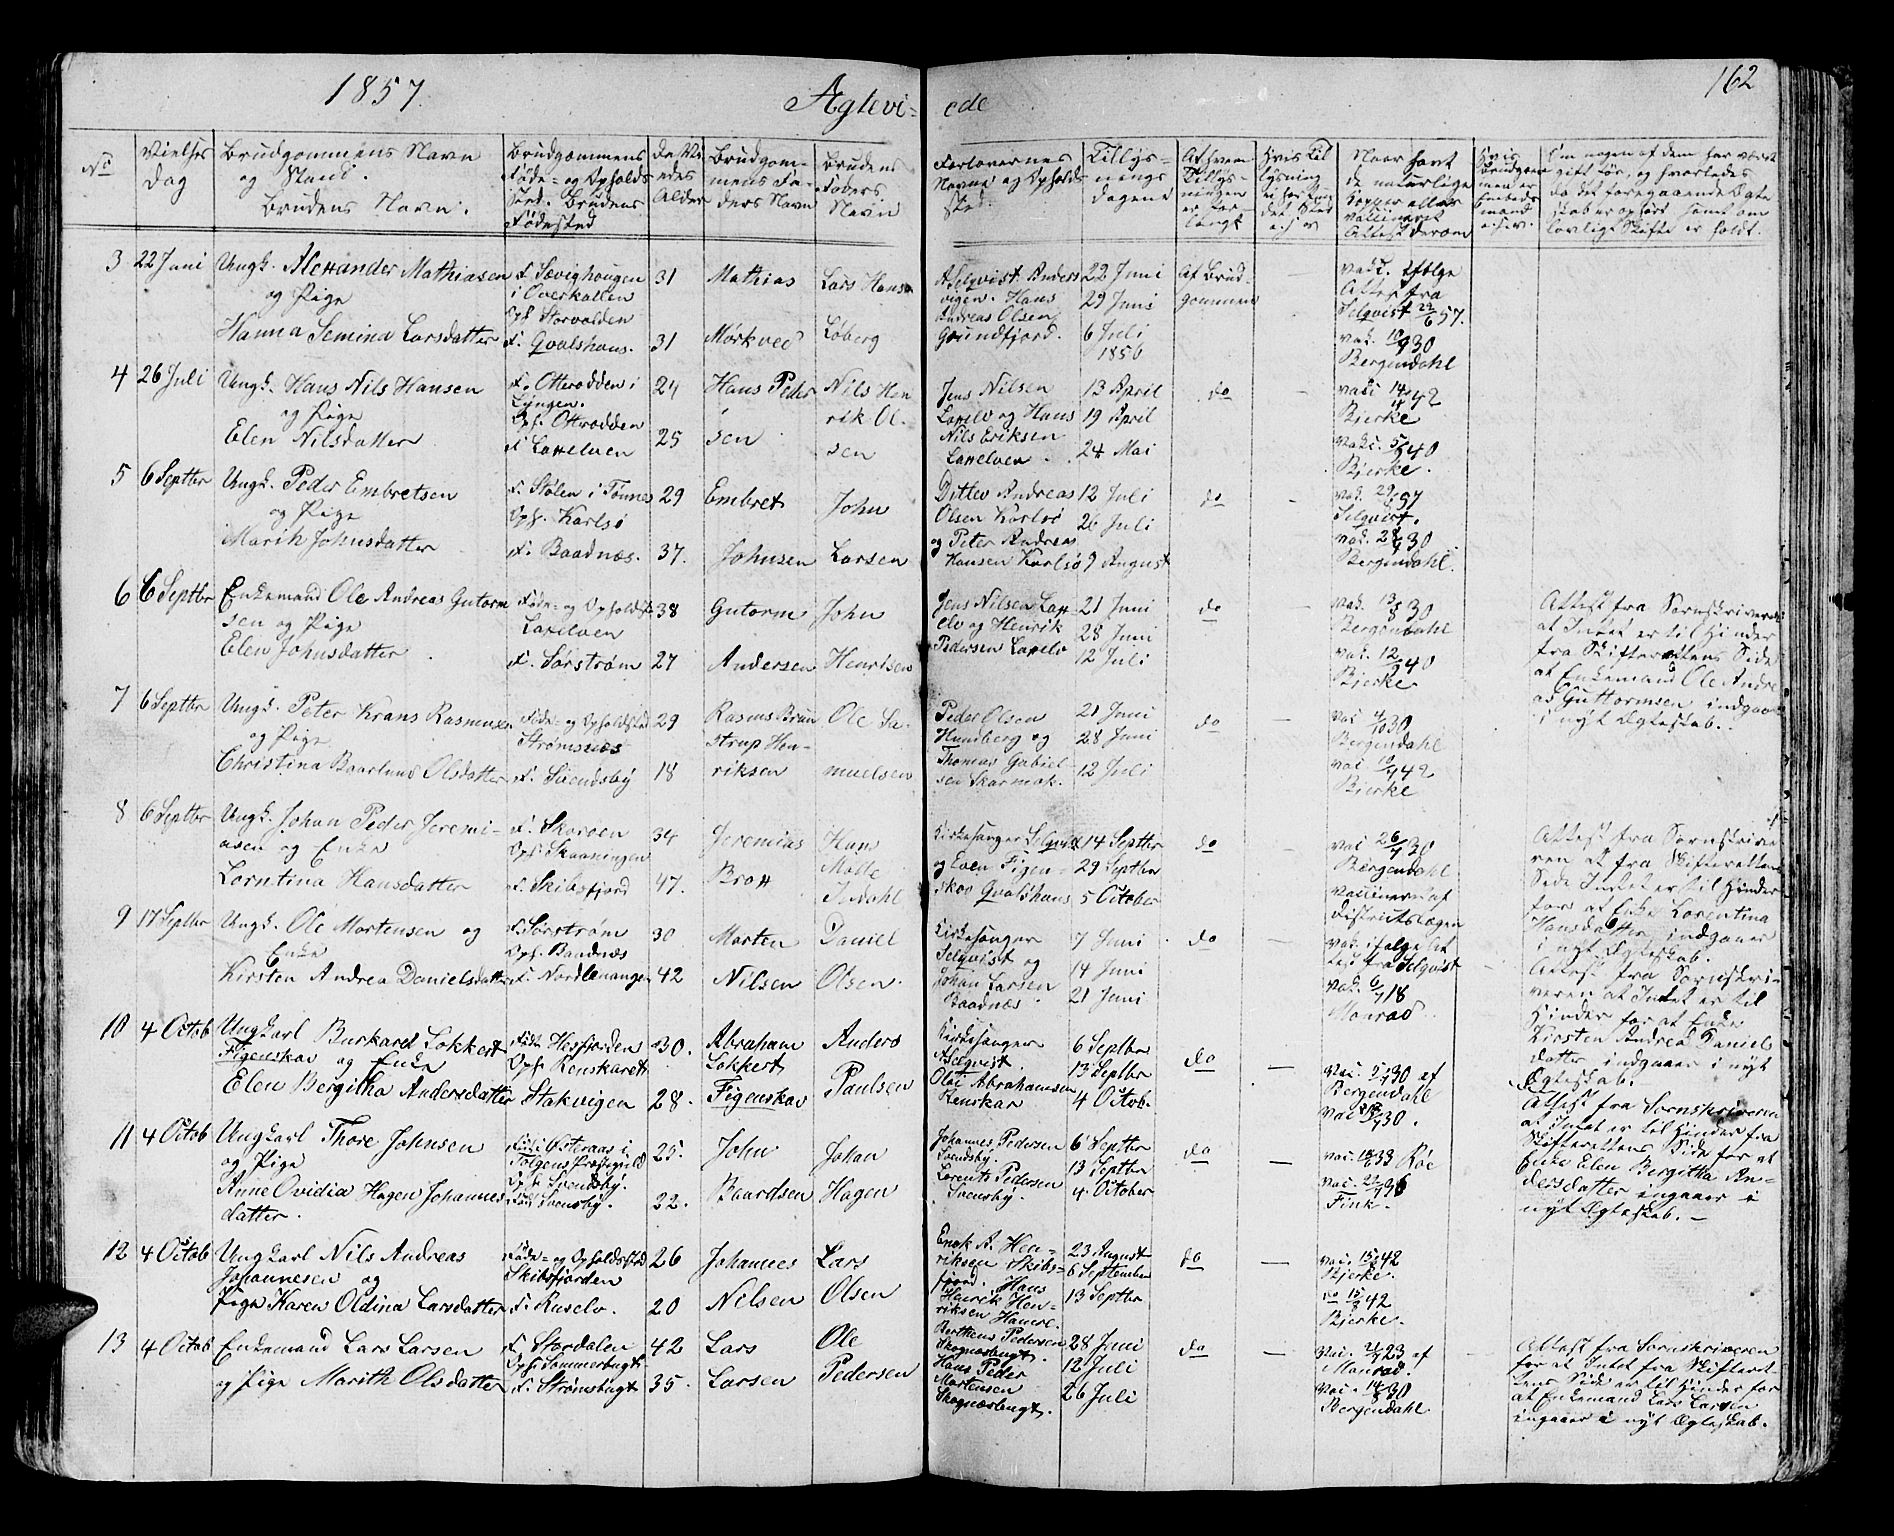 1857. Ægtevi- ede 162
No
Vielses Dag
Brudgommens Navn og Stand. Brudens Navn.
Brudgommens Føde- og Opholds Sted. Brudens Fødested
De Vi edes Alder
Brudgommens Faders Navn
Brudens Faders Navn
Forlovernes Navne og Opholds sted
Tillysnings dagene
Af hvem Tillysningen er forlangt
Om nogen af dem har været gift før, og hvorledes da det foregaaende Ægteskab er ophört samt om lovligt Skifte er holdt.
3 22 Juni Ungk. Alexander Mathiasen
og Pige
Hanna Semina Larsdatter
F. Sævighougen
i Overhallen
Oph. Storvolden
F. Qvalshaus.
31
31
Mathias
Mørkved
Lars Hans
Løberg
A Selqvist. Anders
vigen. Hans
Andreas Olsen
Grundfjord.
22 Juni
29 Juni
6 Juli
1856
Af Brud-
gommen
vacc. ifølge
Attest fra
Selqvist 22/6 57.
Bergendahl
4 26 Juli Ungk. Hans Nils Hansen
og Pige
Elen Nilsdatter
F. Otterodden i
Lyngen.
Oph. Otterodden
F. Laxelven
24
25
Hans Peder
sen
Nils Hen
rik Ol.
sen
Jens Nilsen
Laxelv og Hans
Nils Eriksen
Laxelven
13 April
19 April
24 Mai
do
Bjerke
Bjerke.
5 6 Septbr Ungk. Peder Embretsen
og Pige
Marith Johnsdatter
F. Stølen i Tønnes
Oph. Karlsö
F. Baadnæs.
29
37.
Embret
Johnsen
John
Larsen
Ditlev Andreas
Olsen Karlsö
og Peter Andreas
Hansen Karlsö
12 Juli
26 Juli
9 August
do
Selqvist.
Bergendahl.
6 6 Septbr Enkemand Ole Andreas Gutorm
sen og Pige
Elen Johnsdatter
Føde- og Opholdst
Laxelven
F. Sørstrøm
38
27
Gutorm
Andersen
John
Henriksen
Jens Nilsen Lax
elv og Henrik
Pedersen Laxelv
21 Juni
28 Juni
12 Juli
do
Bergendahl
Bjerke
Attest fra Sorenskriveren
at Intet er til Hinder
fra Skifterettens Side
at Enkemand Ole Andre
as Guttormsen indgaaer
i nyt Ægteskab.
7 6 Septbr Ungk. Peter Krans Rasmussen
og Pige
Christina Baarlund Olsdatter
Føde- og Opholdsted
Strømsnæs
F. Svendsby
29
18
Rasmus Brun
strup Hen-
riksen
Ole Sa-
muelsen
Peder Olsen
Hundberg og
Thomas Gabiel
sen Skarmak.
21 Juni
28 Juni
12 Juli
do
Bergendahl
Bjerke
8 6 Septbr Ungk. Johan Peder Jeremi-
asen og Enke
Lorntina Hansdatter
F. Skoroen
Oph. Skaaningen
F. Skibsfjord
34
47.
Jeremias
Brox
Hans
Indahl
Kirkesanger Selqvist
og Even Figen-
skov Qvalshaus
14 Septbr
29 Septbr
5 October
do
Bergendahl
vaccineret af
Districtslægen
Attest fra Sorenskrive
ren at fra Skifterettens
Side Intet er til Hinder
for at Enke Lorentina
Hansdatter indgaaer
i nyt Ægteskab.
9 17 Septbr Ungk. Ole Mortensen og
Enke
Kirsten Andrea Danielsdatter
F. Sørstrøm
Oph. Baadnæs
F. Nordlenangen
30
42
Morten
Nilsen
Daniel
Olsen
Kirkesanger
Selqvist og
Johan Larsen
Baadnæs
7 Juni
14 Juni
21 Juni
do
vac. ifølge At
test fra Selqvist
Monrad
Attest fra Sorenskri-
veren at Intet er til
Hinder for at Enke
Kirsten Andrea Daniels
datter indgaaer i nyt
Ægteskab.
10 4 Octob Ungkarl Burkard Lokkert
Figenskav og Enke
Elen Bergitha Andersdatter
Oph. Renskaret
Stakvigen
30.
28.
Abraham
Lokkert
Figenskav
Anders
Paulsen
Kirkesanger
Selqvist.
Olai Abrahamsen
Renskar
6 Septbr
13 Septbr
4 Octob.
do
Bergendahl
Attest fra Sorenskriveren
at Intet er til Hinder fra
Skifterettens Side for at
Enke Elen Bergitha An-
dersdatter ingaaer i
nyt Ægteskab.
11 4 Octob Ungkarl Thore Johnsen
og Pige
Anne Ovidia Hagen Johannes
datter.
Fød i Østeraas i
Tolgens Præstegield
Oph. Svendsby.
Svensby.
25.
22.
John
Baardsen
Johan
Hagen
Johannes Pedersen
Svendsby.
Lorents Pedersen
Svensby.
6 Septbr
13 Septbr
4 October
do
Fink.
12 4 Octob Ungkarl Nils Andreas
Johannesen og
Pige Karen Oldina Larsdatter
Føde- og Opholdssted
Skibsfjorden
F. Ruselv.
26
20
Johannes
Nelsen
Lars
Olsen
Enok A. Hen-
riksen Skibs-
fjord. Hans
Henrik Hen-
riksen Hamre.
23 August
6 September
13 Septbr
do
vac. 15/8 42
Bjerke.
do 15/8 42
Bjerke.
13 4 Octob Enkemand Lars Larsen
og Pige Marith Olsdatter
F. Stordalen
Oph. Sommerbugt
F. Strømsbugt
42
35.
Lars
Larsen
Ole
Pedersen
Berthens Pedersen
Skognæsbugt.
Hans Peder
Mortensen
Skognæsbugt.
28 Juni
12 Juli
26 Juli
do
Monrad.
Bergendahl.
Attest fra Sorenskriveren
for at Intet fra Skifteret
tens Side er til Hinder for
at Enkemand Lars Larsen
ingaaer i nyt Ægteskab.